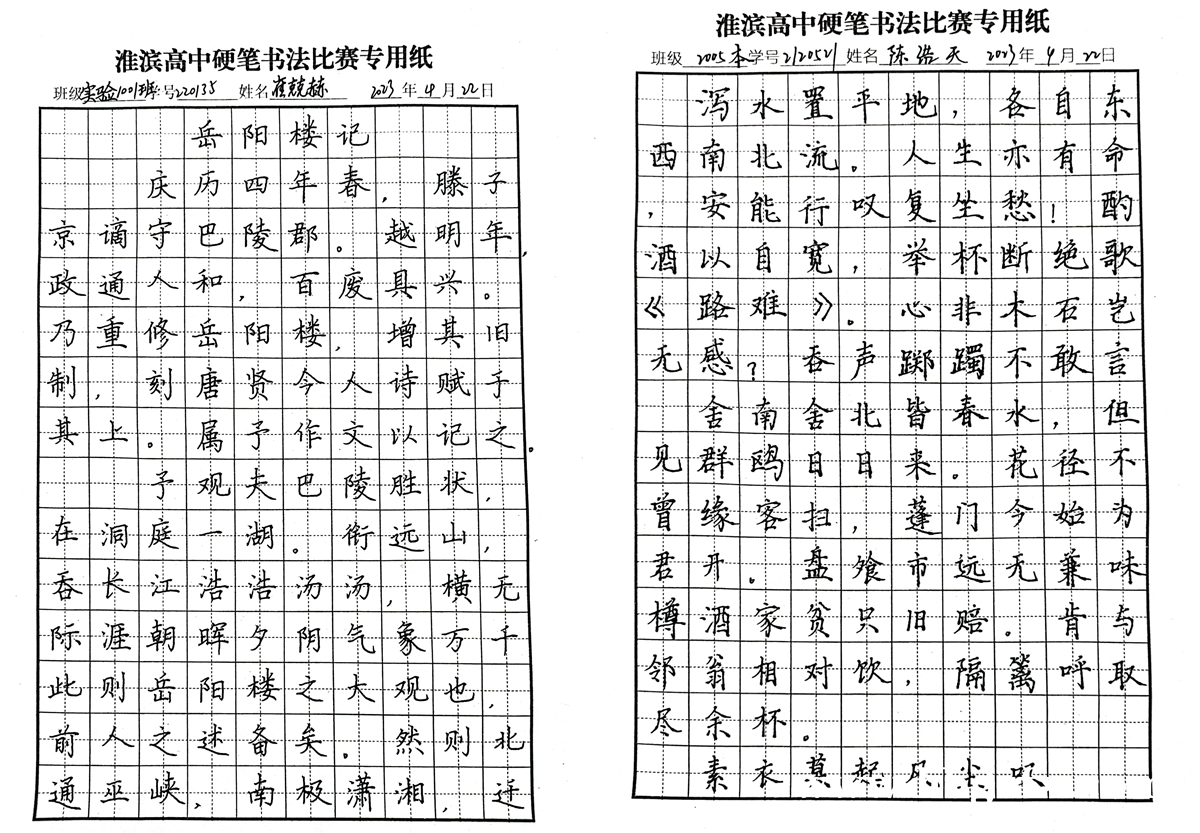 淮滨高中硬笔书法比赛专用纸
班级实验1001班学号220135 姓名 2023年4月22日
岳阳楼记
庆历四年春,滕子
京谪守巴陵郡。越明年,
政通人和,百废具兴。
乃重修岳阳楼,增其旧
制,刻唐贤今人诗赋于
其上。属予作文以记之。
予观夫巴陵胜状,
在洞庭一湖。衔远山,
吞长江浩浩汤汤,横无
际涯朝晖夕阴气象万千
此则岳阳楼之大观也,
前人之述备矣。然则北
通巫峡,南极潇湘,迁
淮滨高中硬笔书法比赛专用纸
班级2005本学号2120521姓名陈浩天 2023年4月22日
泻水置平地,各自东
西南北流。人生亦有命
,安能行叹复坐愁!酌
酒以自宽,举杯断绝歌
《路难》。心非木石岂
无感?吞声踯躅不敢言
舍南舍北皆春水,但
见群鸥日日来。花径不
曾缘客扫,蓬门今始为
君开。盘飧市远无兼味
樽酒家贫只旧赔。肯与
邻翁相对饮,隔篱呼取
尽余杯。
素衣莫起风尘叹